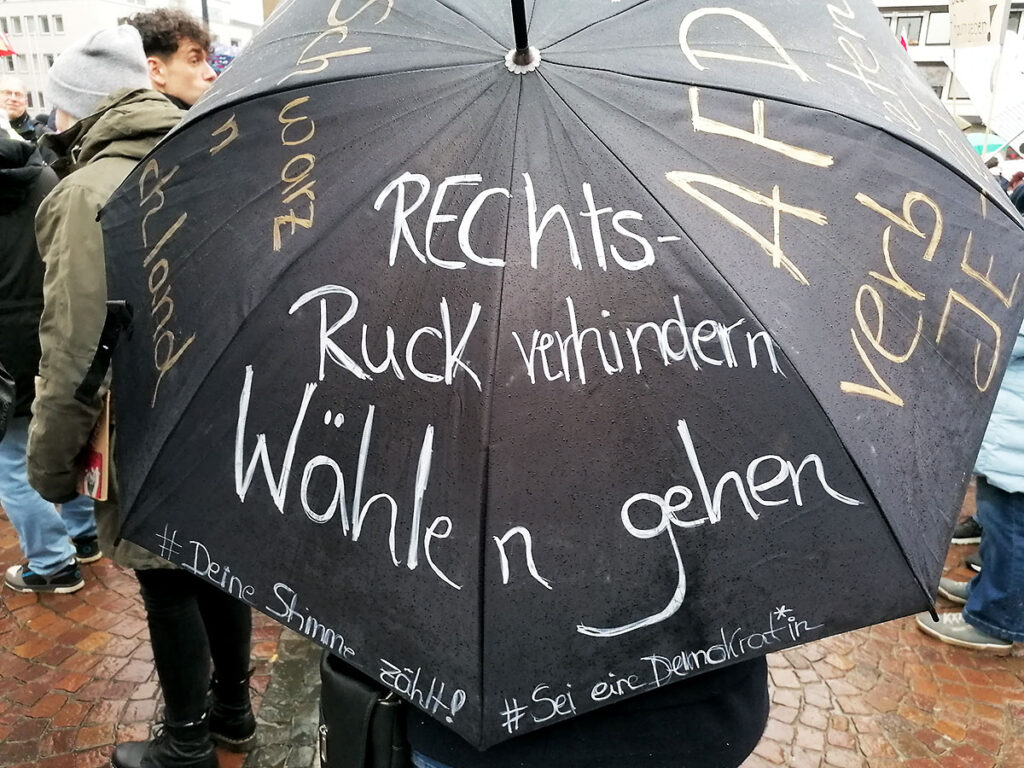 RECHts-
Ruck verhindern
Wählen gehen
#Deine Stimme zählt!
#Sei eine Demokrat*in
AFD
AF
verb
JE-
warz
n
chland